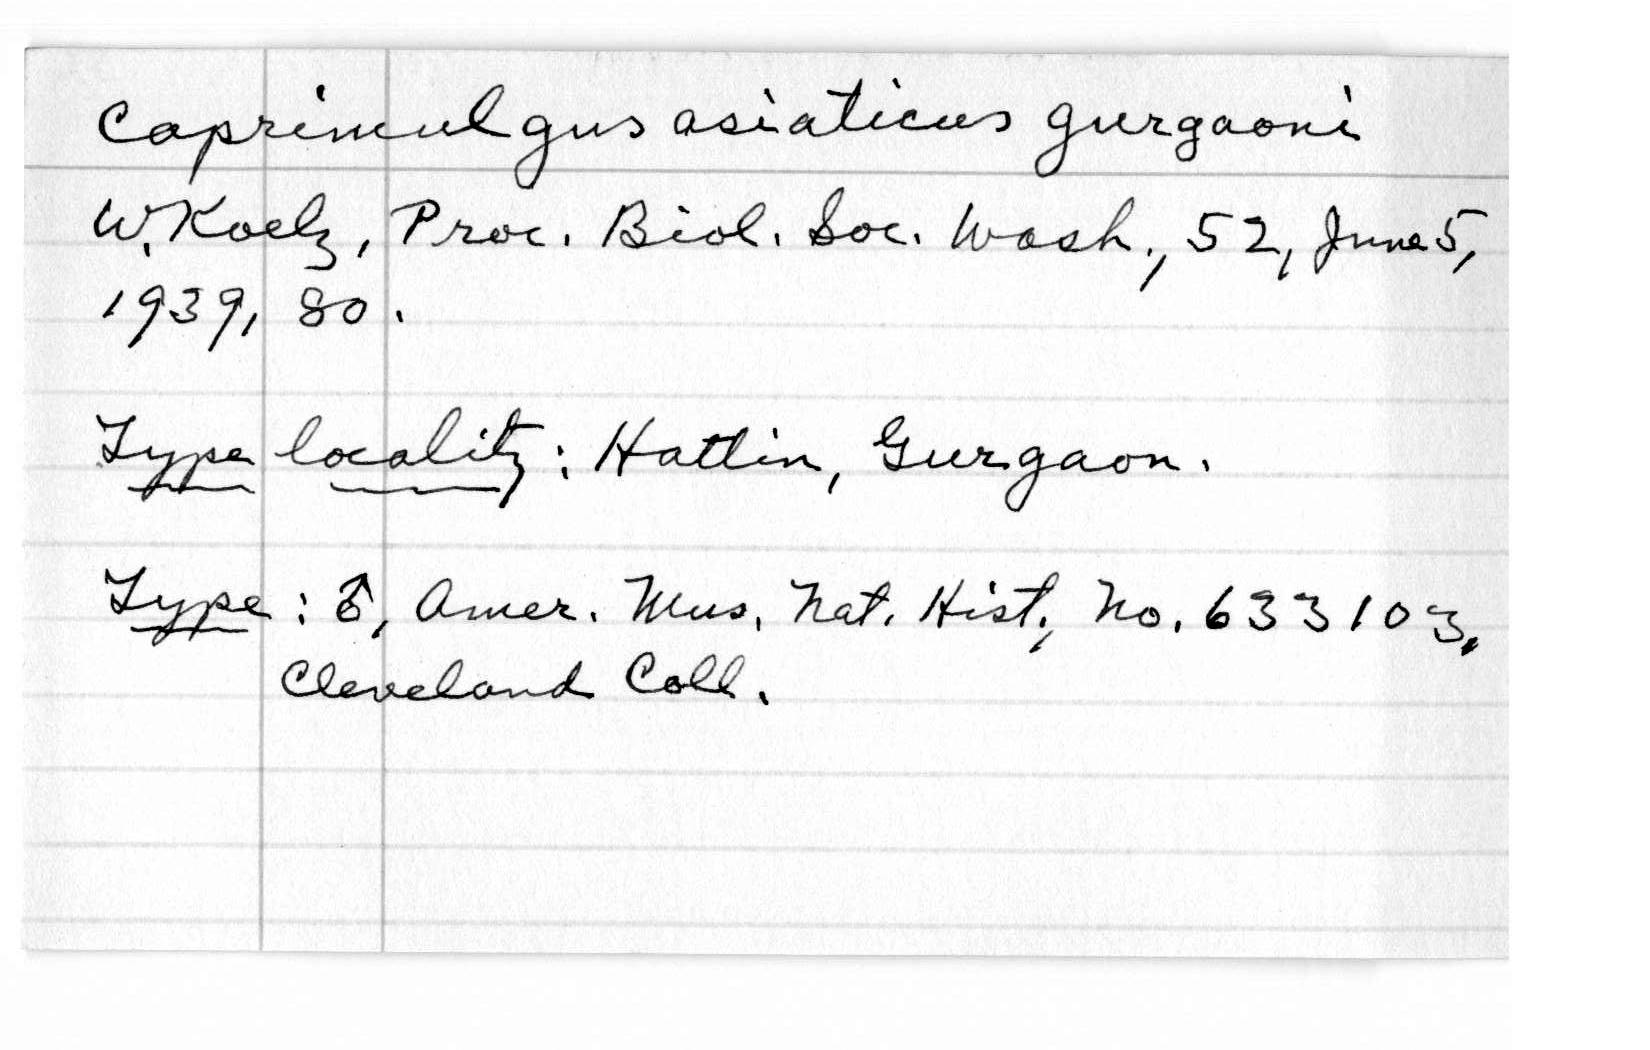 Caprimulgus asiaticus gurgaoni
W. Koelz, Proc. Biol. Soc. Wash., 52, June 5,
1939, 80.
Type locality: Hattin, Gurgaon.
Type: ♂, Amer. Mus. Nat. Hist., No. 633103,
Cleveland Coll.